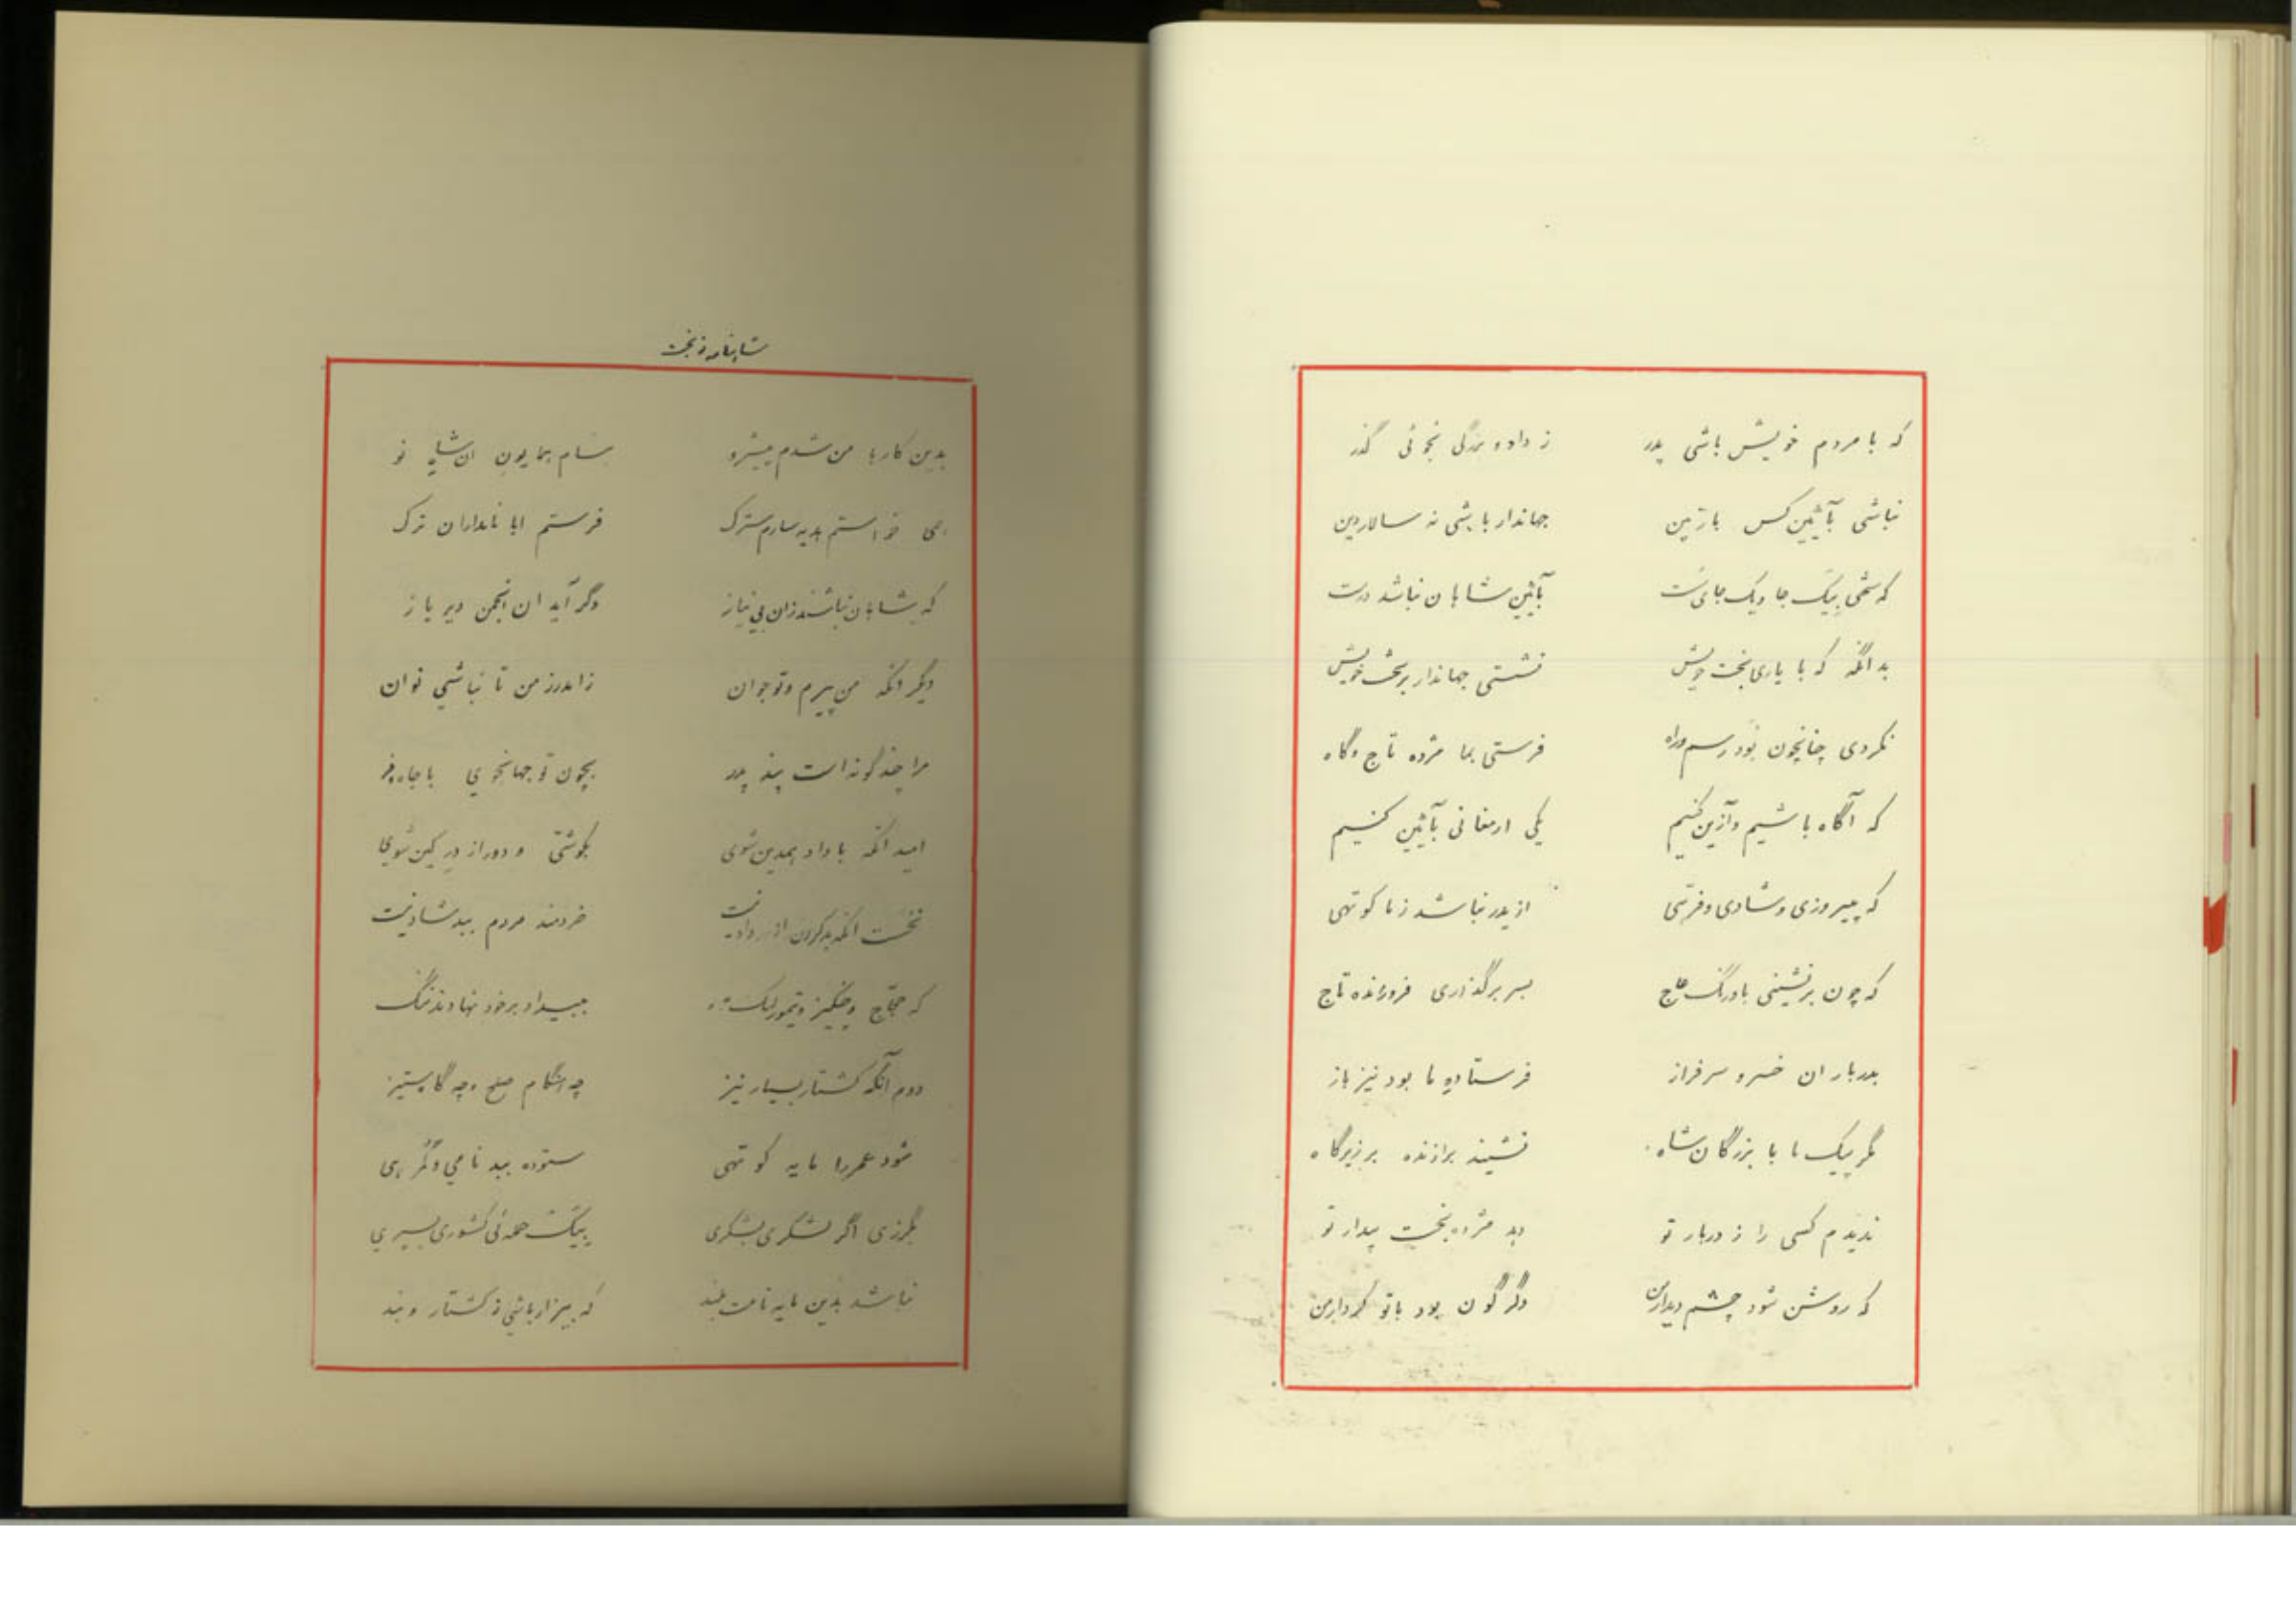 که با مردم خویش باشی پدر ز داد و بزرگی نجوئی گذر
نباشی بآئین کس بارتین جهاندار باشی نه سالار دین
که شمی بیک جا و یک جای سست بآئین شاهان نباشد درست
بد آنگه که با یاری بخت خویش نشستی جهاندار بر تخت خویش
نکردی چنانچون بود رسم و راه فرستی بما مژده تاج و گاه
که آگاه باشیم و آذین کنیم یکی ارمغانی بآئین کنیم
که پیروزی و شادی و فرهی از ایدر نباشد ز ما کوتهی
که چون برنشینی باورنگ عاج بسر برگذاری فروزنده تاج
بدربار ان خسرو سرفراز فرستاده ما بود نیز باز
مگر پیک ما با بزرگان شاه نشیند برازنده بر زیرگاه
ندیدم کسی را ز دربار تو دهد مژده بخت بیدار تو
که روشن شود چشم دیدار من دگرگون بود با تو کردار من
شاهنامه نوبخت
بدین کارها من شدم پیشرو بنام همایون ان شاه نو
همی خواستم هدیه سترک فرستم ابا نامداران ترک
که شاهان نباشند زان بی نیاز دگر آید ان انجمن دیر یاز
دیگر انکه من پیرم و تو جوان ز اندرز من تا نباشی نوان
مرا چند گونه است پند پدر بچون تو جهانجوی با جاه و فر
امید انکه با داد همدین شوی بکوشی و دور از در کین شوی
نخست انکه بد کردن از داد نیست خردمند مردم ببد شاد نیست
که حجاج و چنگیز و تیمور لنگ ببیداد بر خود نهادند ننگ
دوم آنکه کشتار بسیار نیز چه هنگام صلح و چه گاه ستیز
شود عمر را مایه کوتهی ستوده ببد نامی و گمرهی
بگرزی اگر لشکری بشکری بیک حمله ئی کشوری بسپری
نباشد بدین مایه نامت بلند که بیزار باشی ز کشتار و بند